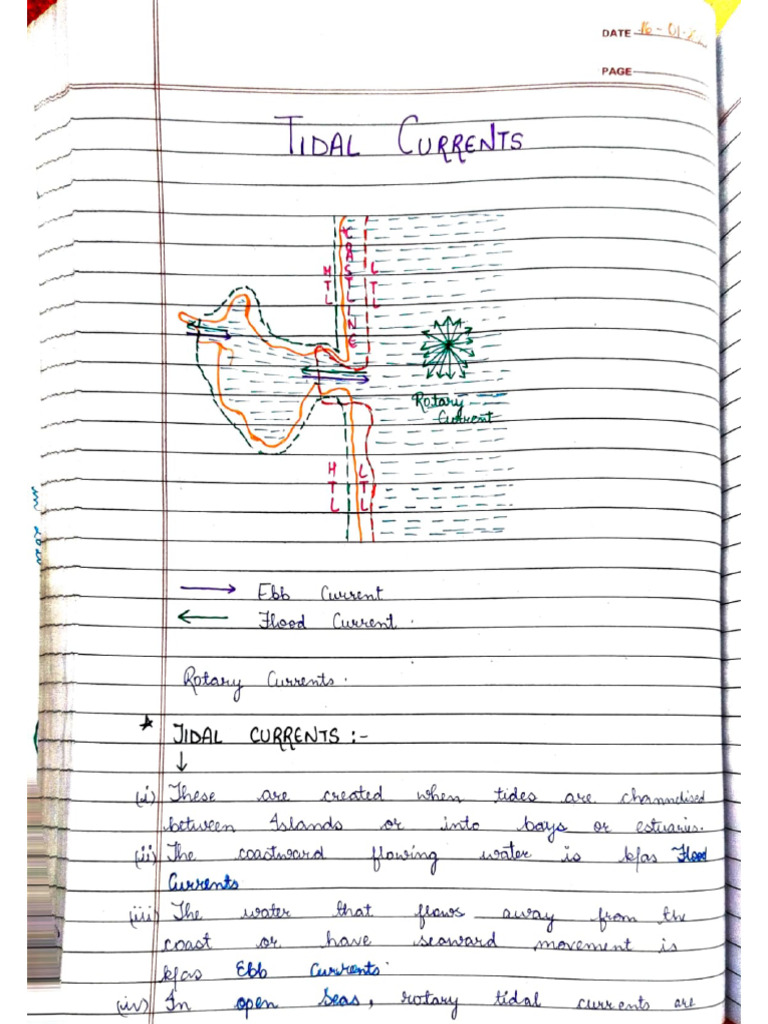 DATE 16-01-22
PAGE
TIDAL CURRENTS
COASTLINE
HTL
LTL
Rotary
Current
HTL
LTL
Ebb Current
Flood Current.
Rotary Currents.
* TIDAL CURRENTS :-
↓
(i) These are created when tides are channelised
between Islands or into bays or estuaries.
(ii) The coastward flowing water is k/as Flood
Currents
(iii) The water that flows away from the
coast or have seaward movement is
k/as Ebb Currents.
(iv) In open seas, rotary tidal currents are